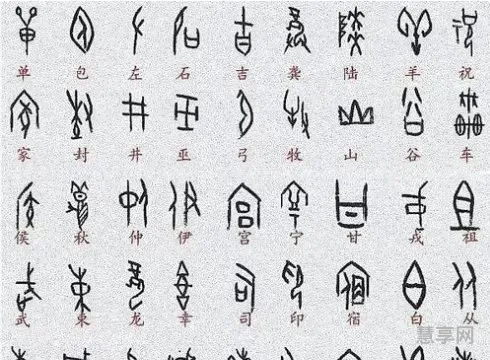 单 包 左 石 吉 龚 陆 羊 祝
家 封 井 巫 弓 牧 山 谷 车
侯 秋 仲 伊 宫 宁 甘 戎 祖
武 束 龙 幸 司 印 宿 白 从
慧享网